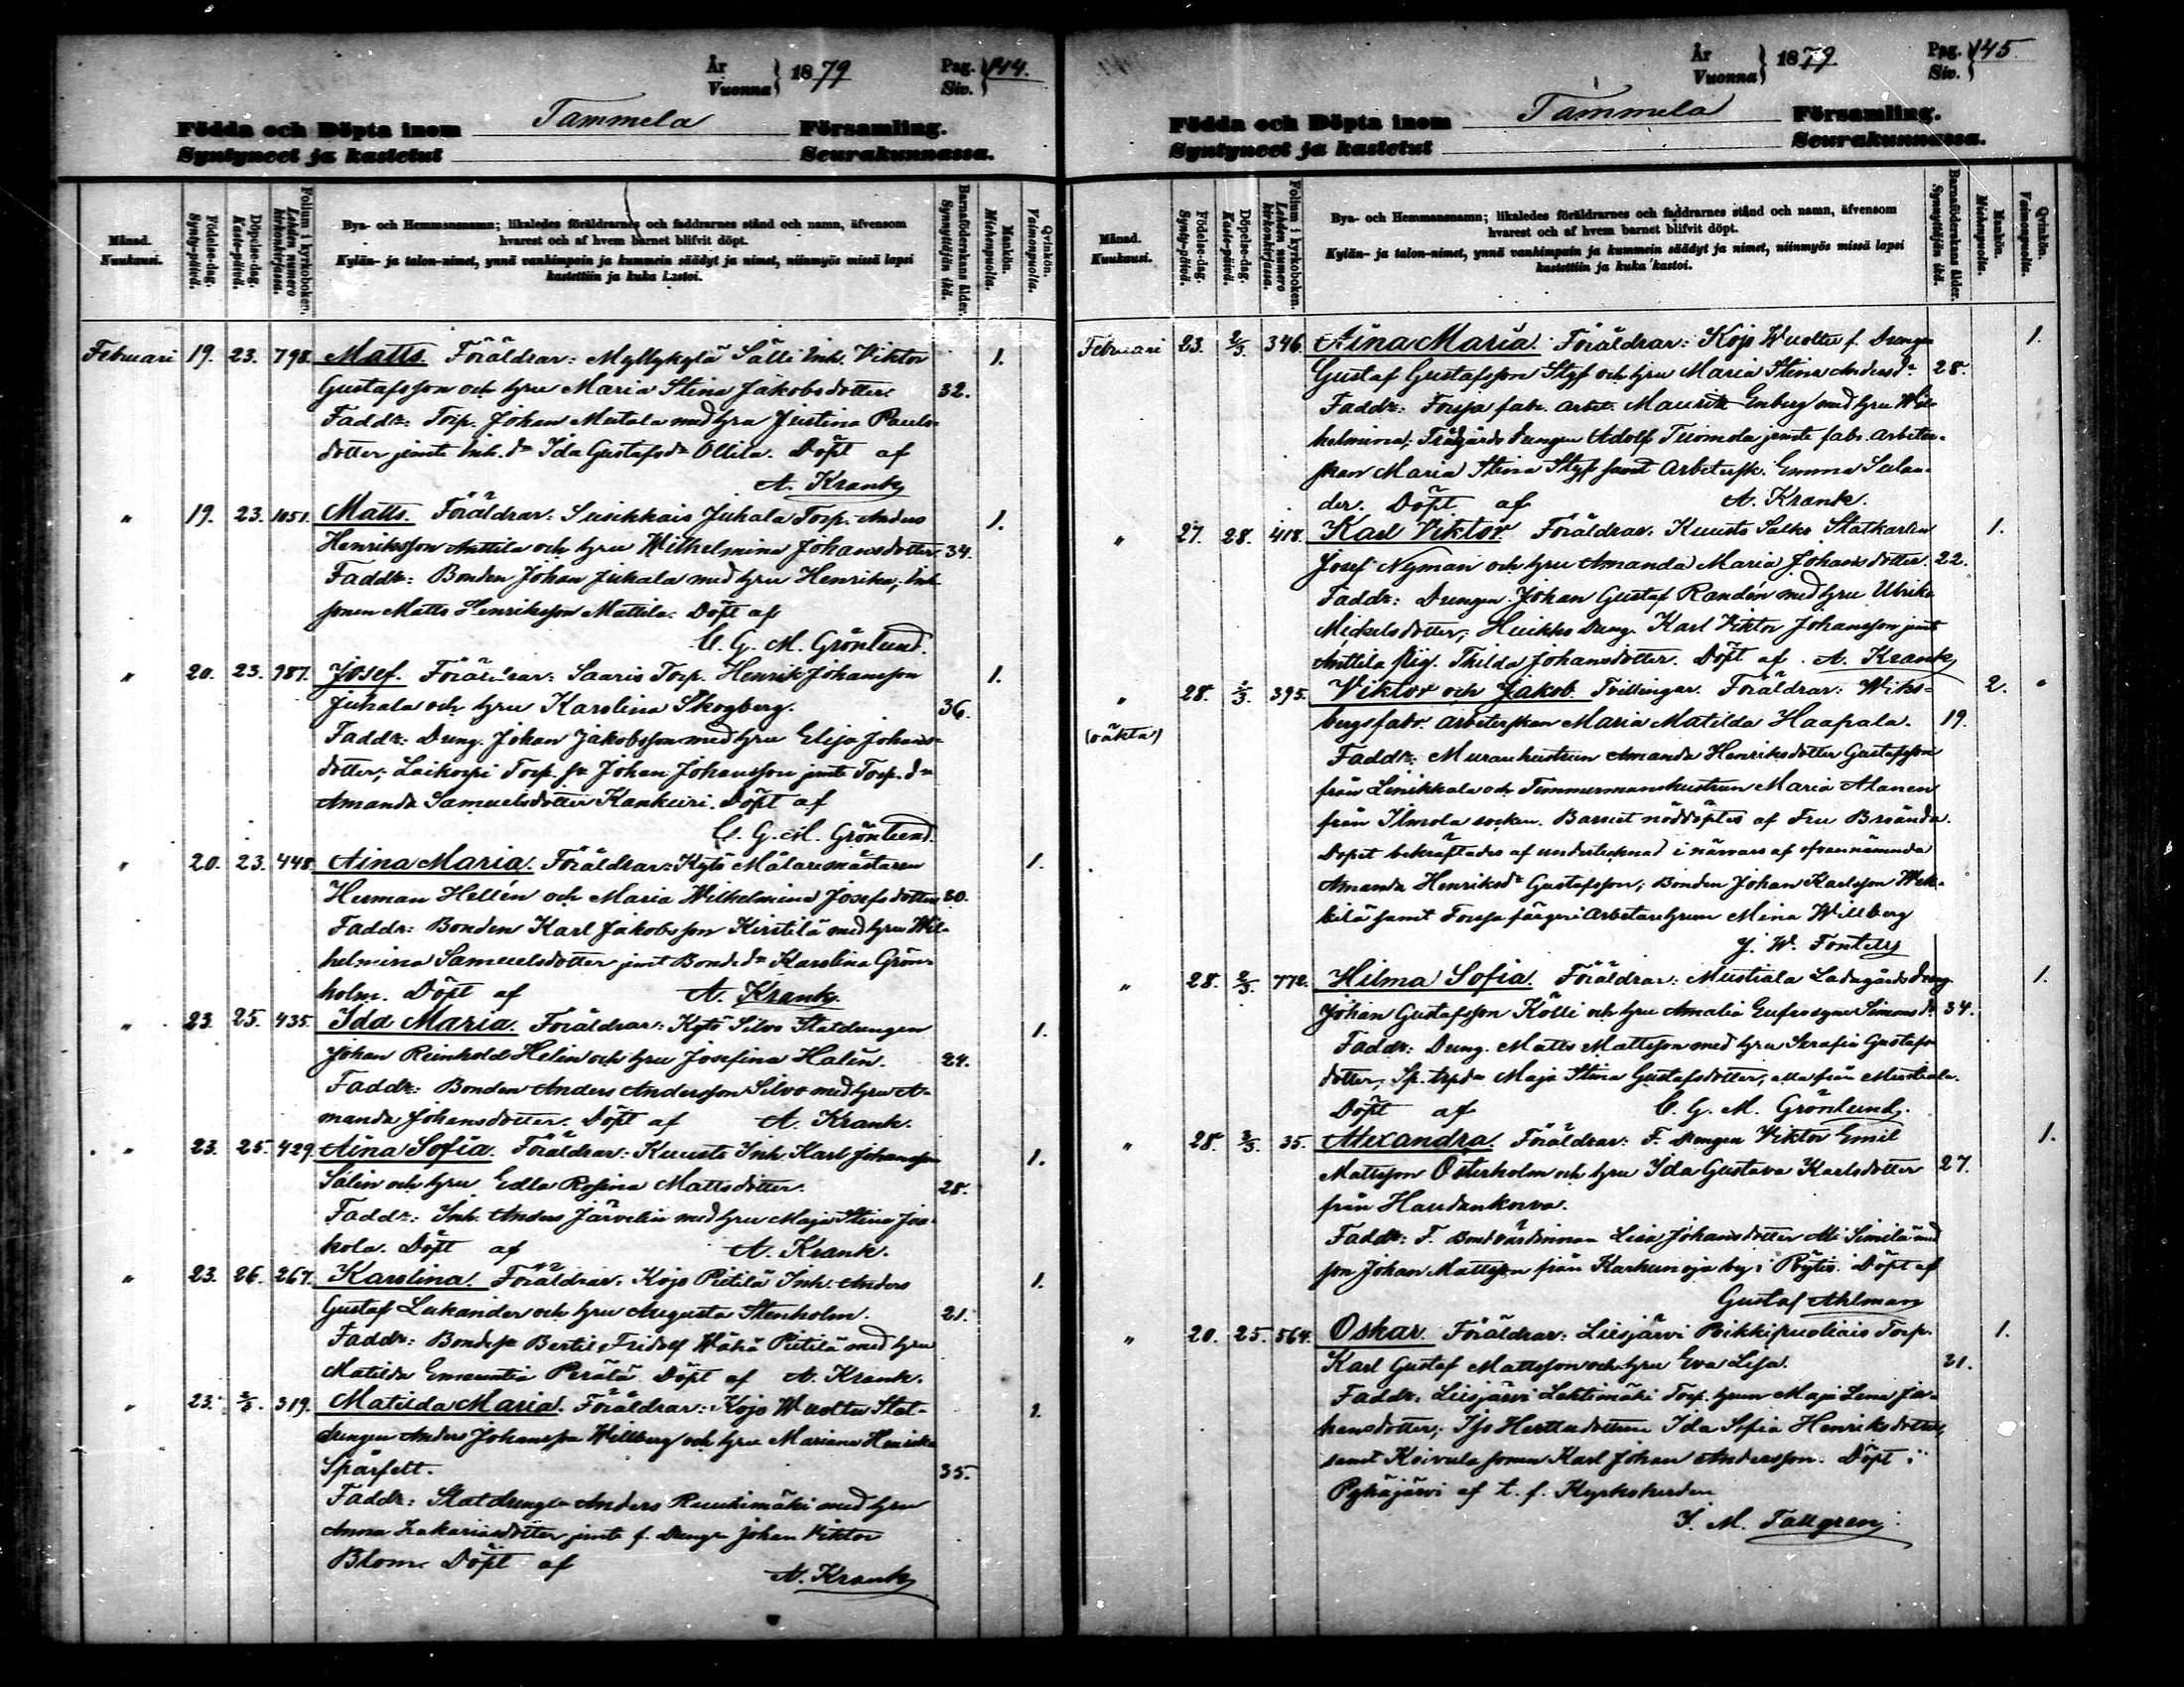 År
Vuonna } 1879 Pag. Siv. } 144.
Födda och Döpta inom Tammela Församling.
Syntyneet ja kastetut Seurakunnassa.
Månad. Kuukausi.
Födelse-dag. Synty-päivä.
Döpelse-dag. Kaste-päivä.
Folium i kyrkoboken. Lehden numero kirkonkirjassa.
Bya- och Hemmansnamn; likaledes föräldrarnes och faddrarnes stånd och namn, äfvensom
hvarest och af hvem barnet blifvit döpt.
Kylän- ja talon-nimet, ynnä vanhimpain ja kummein säädyt ja nimet, niinmyös missä lapsi
kastettiin ja kuka kastoi.
Barnaföderskans ålder. Synnyttäjän ikä.
Mankön. Miehenpuolia.
Qvinkön. Vaimonpuolia.
Februari 19. 23. 798. Matts. Föräldrar: Myllykylä Sälli Inh. Viktor 1.
Gustafsson och hru Maria Stina Jakobsdotter. 32.
Faddr: Torp. Johan Mutala med hru Justina Pauls-
dotter jemte Inh. dr Ida Gustafsdr Ollila. Döpt af
A. Krank
" 19. 23. 1051. Matts. Föräldrar: Susikkais Juhala Torp. Anders 1.
Henriksson Anttila och hru Wilhelmina Johansdotter. 34.
Faddr: Bonden Johan Juhala med hru Henrika, Inh.
sonen Matts Henriksson Mattila. Döpt af
C. G. M. Grönlund.
" 20. 23. 987. Josef. Föräldrar: Saaris Torp. Henrik Johansson 1.
Juhala och hru Karolina Skogberg. 36.
Faddr: Dräng. Johan Jakobsson med hru Elisa Johans-
dotter; Torp. sn Johan Johansson jemte Torp. dr
Amanda Samuelsdotter Kankuri. Döpt af
C. G. M. Grönlund.
" 20. 23. 448. Aina Maria. Föräldrar: Kytö Målaremästaren 1.
Herman Hellén och Maria Wilhelmina Josefsdotter 30.
Faddr: Bonden Karl Jakobsson Kirstilä med hru Wil-
helmina Samuelsdotter jemt Bonddr Karolina Grön-
holm. Döpt af A. Krank.
" 23. 25. 435. Ida Maria. Föräldrar: Kytö Silvo Statdrängen 1.
Johan Reinhold Helin och hru Josefina Halin. 24.
Faddr: Bonden Anders Andersson Silvo med hru A-
manda Johansdotter. Döpt af A. Krank.
" 23. 25. 429. Aina Sofia. Föräldrar: Kuusto Inh. Karl Johansson 1.
Salin och hru Edla Rosina Mattsdotter. 28.
Faddr: Inh. Anders Järvelin med hru Maja Stina Jva-
kola. Döpt af A. Krank.
" 23. 26. 267. Karolina. Föräldrar: Kojo Pietilä Inh. Anders 1.
Gustaf Lukander och hru Augusta Stenholm. 21.
Faddr: Bondesn Bertil Fridolf Wähä Pietilä med hru
Matilda Emerentia Perälä. Döpt af A. Krank.
" 23. 2/3. 319. Matilda Maria. Föräldrar: Kojo Wuoltu Stat- 1.
drängen Anders Johansson Willberg och hru Mariana Henrika
Sparfelt. 35.
Faddr: Statdrängen Anders Ruuhimäki med hru
Anna Zakariasdotter jemte f. Drängen Johan Viktor
Blom. Döpt af A. Krank
År
Vuonna } 1879 Pag. Siv. } 145.
Födda och Döpta inom Tammela Församling.
Syntyneet ja kastetut Seurakunnassa.
Månad. Kuukausi.
Födelse-dag. Synty-päivä.
Döpelse-dag. Kaste-päivä.
Folium i kyrkoboken. Lehden numero kirkonkirjassa.
Bya- och Hemmansnamn; likaledes föräldrarnes och faddrarnes stånd och namn, äfvensom
hvarest och af hvem barnet blifvit döpt.
Kylän- ja talon-nimet, ynnä vanhimpain ja kummein säädyt ja nimet, niinmyös missä lapsi
kastettiin ja kuka kastoi.
Barnaföderskans ålder. Synnyttäjän ikä.
Mankön. Miehenpuolia.
Qvinkön. Vaimonpuolia.
Februari 23. 2/3. 346. Aina Maria. Föräldrar: Kojo Wuoltu f. Drängen 1.
Gustaf Gustafsson Styf och hru Maria Stina Andersdr 28.
Faddr: Forssa fabr. arbet. Maurits Enberg med hru Wil-
helmina; Trädgårds drängen Adolf Tuomola jemte fabr. arbeter-
skan Maria Stina Styf samt arbetersk. Emma Selan-
der. Döpt af A. Krank.
" 27. 28. 418. Karl Viktor. Föräldrar: Kuusto Salko Statkarlen 1.
Josef Nyman och hru Amanda Maria Johansdotter. 22.
Faddr: Drängen Johan Gustaf Randén med hru Ulrika
Mickelsdotter; Huikko Dräng. Karl Viktor Johansson jemte
Anttila pig. Thilda Johansdotter. Döpt af A. Krank
" 28. 2/3. 395. Viktor och Jakob. Tvillingar. Föräldrar: Wiks- 2. "
(oäkta) bergs fabr. arbeterskan Maria Matilda Haapala. 19.
Faddr: Murarehustrun Amanda Henriksdotter Gustafsson
från Linikkala och Timmermanshustrun Maria Alanen
från Ilmola socken. Barnet nöddöptes af Fru Brsända.
Dopet bekräftades af undertecknad i närvaro af ofvannämnda
Amanda Henriksdr Gustafsson; Bonden Johan Karlsson Wek-
kilä samt Forssa färgeri Arbetare hrun Mina Willberg
J. W. Fontell
" 28. 2/3. 772. Hilma Sofia. Föräldrar: Mustiala Ladugårds dräng 1.
Johan Gustafsson Kölli och hru Amalia Eufrosyne Simonsdr 34.
Faddr: Dräng. Matts Mattsson med hru Serafia Gustafs-
dotter, Sp. trpdr Maja Stina Gustafsdotter, alla från Mustiala.
Döpt af C. G. M. Grönlund.
" 28. 3/3. 35. Alexandra. Föräldrar: F. Drängen Viktor Emil 1.
Mattsson Österholm och hru Ida Gustava Karlsdotter 27.
från Haudankorva.
Faddr: F. Bondvärdinnan Lisa Johansdotter Ali Simila med
son Johan Mattsson från Karhunoja by i Pöytis. Döpt af
Gustaf Ahlman
" 20. 25. 564. Oskar. Föräldrar: Liesjärvi Poikkipuoliais Torp. 1.
Karl Gustaf Mattsson och hru Eva Lisa. 31.
Faddr: Liesjärvi Lehtimäki Torp. hrun Maja Lena Jo-
hansdotter; Iso Herttu dottern Ida Sofia Henriksdotter,
samt Koivula sonen Karl Johan Andersson. Döpt i
Pyhäjärvi af t. f. Kyrkoherden
I. M. Tallgren